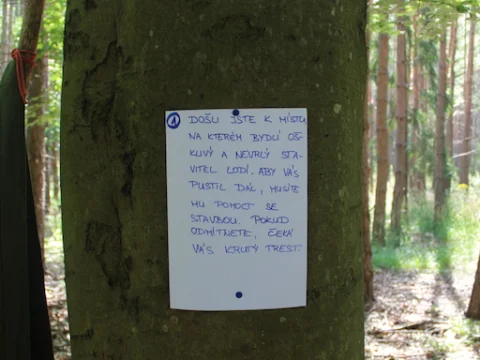 1 DOŠLI JSTE K MÍSTU,
NA KTERÉM BYDLÍ OŠ-
KLIVÝ A NEVRLÝ STA-
VITEL LODÍ. ABY VÁS
PUSTIL DÁL, MUSÍTE
MU POMOCT SE
STAVBOU. POKUD
ODMÍTNETE, ČEKÁ
VÁS KRUTÝ TREST.